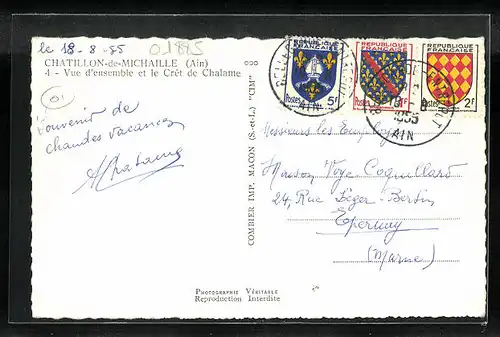 le 18-8-55
01885
CHATILLON-de-MICHAILLE (Ain)
4 - Vue d'ensemble et le Crêt de Chalame
01
Souvenir de
chaudes vacances
COMBIER IMP. MACON (S.-et-L.) "CIM"
REPUBLIQUE FRANÇAISE
Postes 5F
REPUBLIQUE FRANÇAISE
Postes 1F
REPUBLIQUE FRANÇAISE
Postes 2F
AIN
1955
AIN
Messieurs les Employés
Maison Voye Coquillard
24, Rue Léger-Bertin
Epernay
(Marne)
PHOTOGRAPHIE VÉRITABLE
Reproduction Interdite